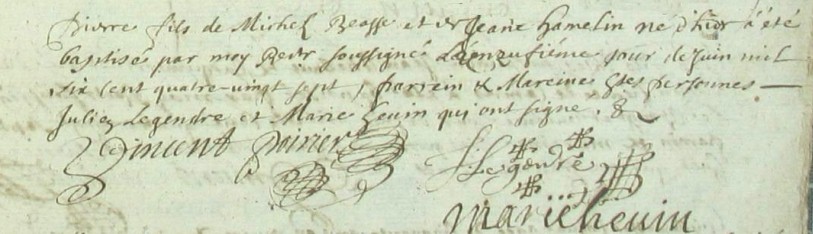 Pierre fils de Michel Beasse et de Jeane hamelin né d'hier a été
baptisé par moy Rectr soussigné Lonzufieme jour de Juin mil
six cent quatre-vingt sept, parrein & Mareine htes personnes —
Julien Legendre et Marie heuin qui ont signé . &
Vincent poirier J: Legendre
marie heuin